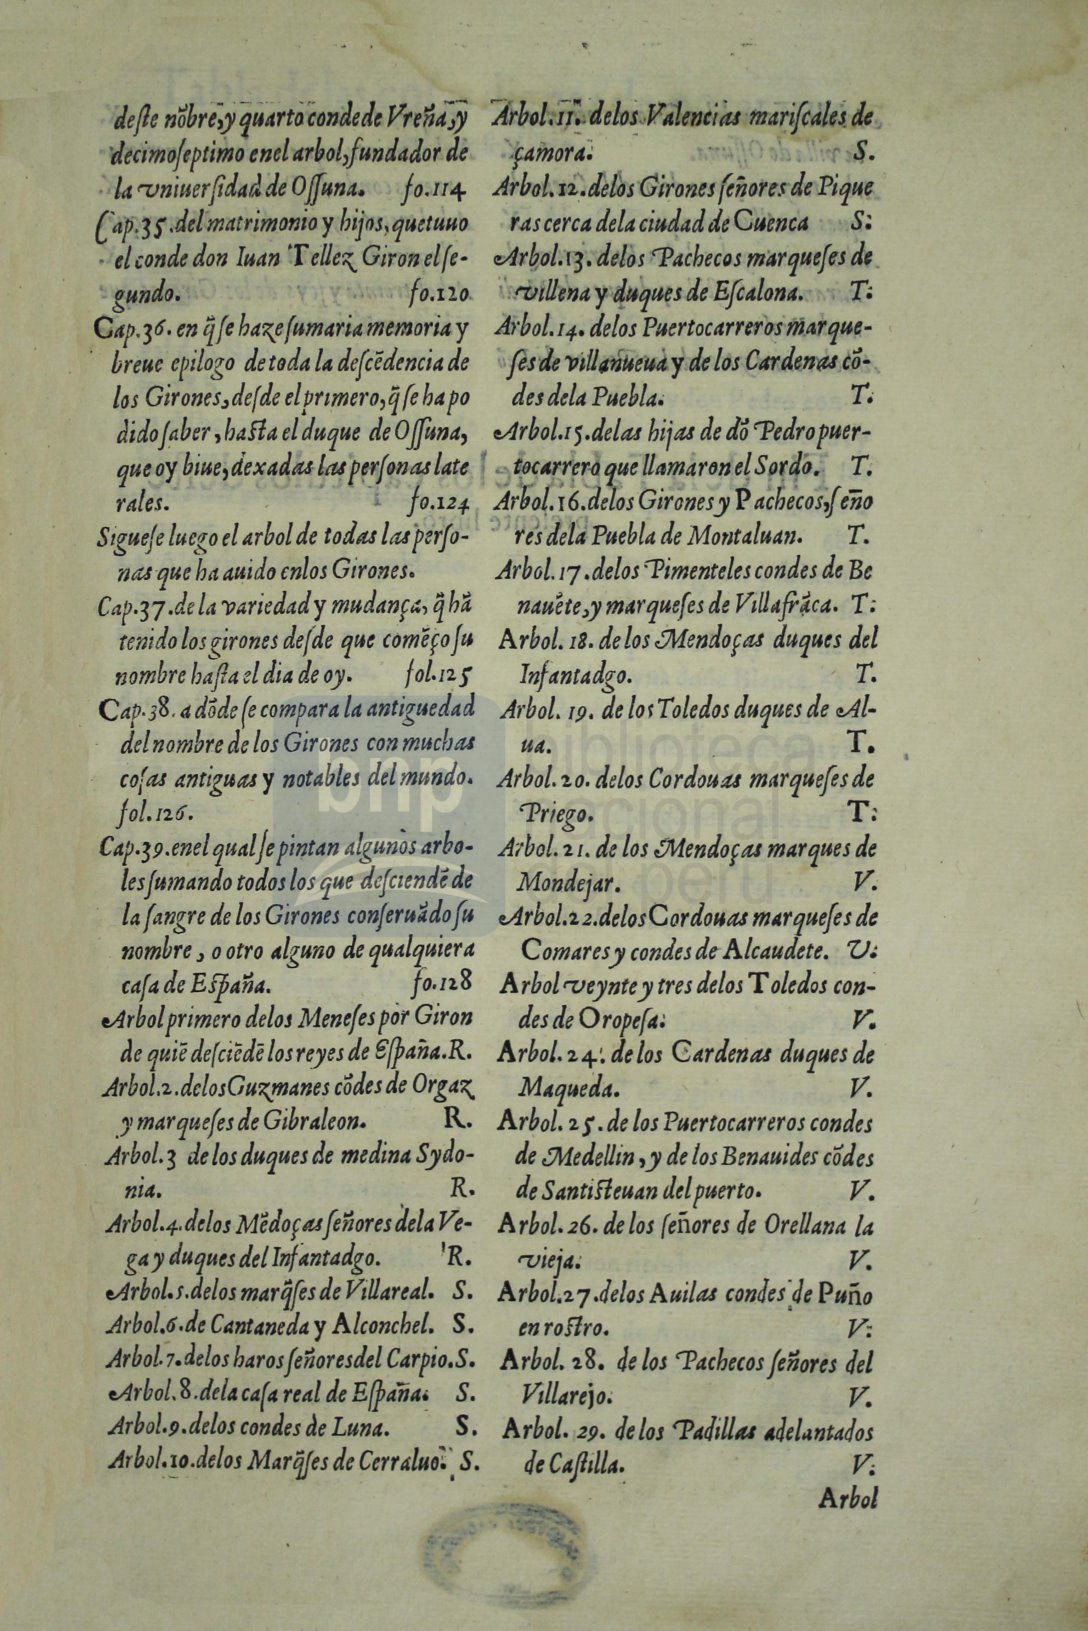 deste nõbre, y quarto conde de Vreña, y
decimoseptimo enel arbol, fundador de
la vniuersidad de Ossuna. fo.114
Cap.35.del matrimonio y hijos, quetuuo
el conde don Iuan Tellez Giron el se-
gundo. fo.120
Cap.36. en q̃ se haze sumaria memoria y
breue epilogo de toda la descẽdencia de
los Girones, desde el primero, q̃ se ha po
dido saber, hasta el duque de Ossuna,
que oy biue, dexadas las personas late
rales. fo.124
Siguese luego el arbol de todas las perso-
nas que ha auido enlos Girones.
Cap.37.de la variedad y mudança, q̃ hã
tenido los girones desde que comẽço su
nombre hasta el dia de oy. fol.125
Cap.38. a dõde se compara la antiguedad
del nombre de los Girones con muchas
cosas antiguas y notables del mundo.
fol.126.
Cap.39.enel qual se pintan algunos arbo-
les sumando todos los que desciendẽ de
la sangre de los Girones conseruãdo su
nombre, o otro alguno de qualquiera
casa de España. fo.128
Arbol primero delos Meneses por Giron
de quiẽ desciẽdẽ los reyes de España.R.
Arbol.2.delos Guzmanes cõdes de Orgaz
y marqueses de Gibraleon. R.
Arbol.3 de los duques de medina Sydo-
nia. R.
Arbol.4.delos Mẽdoças señores dela Ve-
ga y duques del Infantadgo. R.
Arbol.5.delos marq̃ses de Villareal. S.
Arbol.6.de Cantaneda y Alconchel. S.
Arbol.7.delos haros señores del Carpio.S.
Arbol.8.dela casa real de España. S.
Arbol.9.delos condes de Luna. S.
Arbol.10.delos Marq̃ses de Cerraluo. S.
Arbol.11. delos Valencias mariscales de
çamora. S.
Arbol.12.delos Girones señores de Pique
ras cerca dela ciudad de Cuenca S:
Arbol.13. delos Pachecos marqueses de
villena y duques de Escalona. T:
Arbol.14. delos Puertocarreros marque-
ses de villanueua y de los Cardenas cõ-
des dela Puebla. T:
Arbol.15.delas hijas de dõ Pedro puer-
tocarrero que llamaron el Sordo. T.
Arbol.16.delos Girones y Pachecos, seño
res dela Puebla de Montaluan. T.
Arbol.17.delos Pimenteles condes de Be
nauẽte, y marqueses de Villafrãca. T:
Arbol.18. de los Mendoças duques del
Infantadgo. T.
Arbol. 19. de los Toledos duques de Al-
ua. T.
Arbol.20. delos Cordouas marqueses de
Priego. T:
Arbol.21. de los Mendoças marques de
Mondejar. V.
Arbol.22.delos Cordouas marqueses de
Comares y condes de Alcaudete. V:
Arbol veynte y tres delos Toledos con-
des de Oropesa: V.
Arbol.24. de los Cardenas duques de
Maqueda. V.
Arbol. 25.de los Puertocarreros condes
de Medellin, y de los Benauides cõdes
de Santisteuan del puerto. V.
Arbol. 26. de los señores de Orellana la
vieja. V.
Arbol.27.delos Auilas condes de Puño
en rostro. V:
Arbol. 28. de los Pachecos señores del
Villarejo. V.
Arbol. 29. de los Padillas adelantados
de Castilla. V:
Arbol
bnp biblioteca
nacional
perú